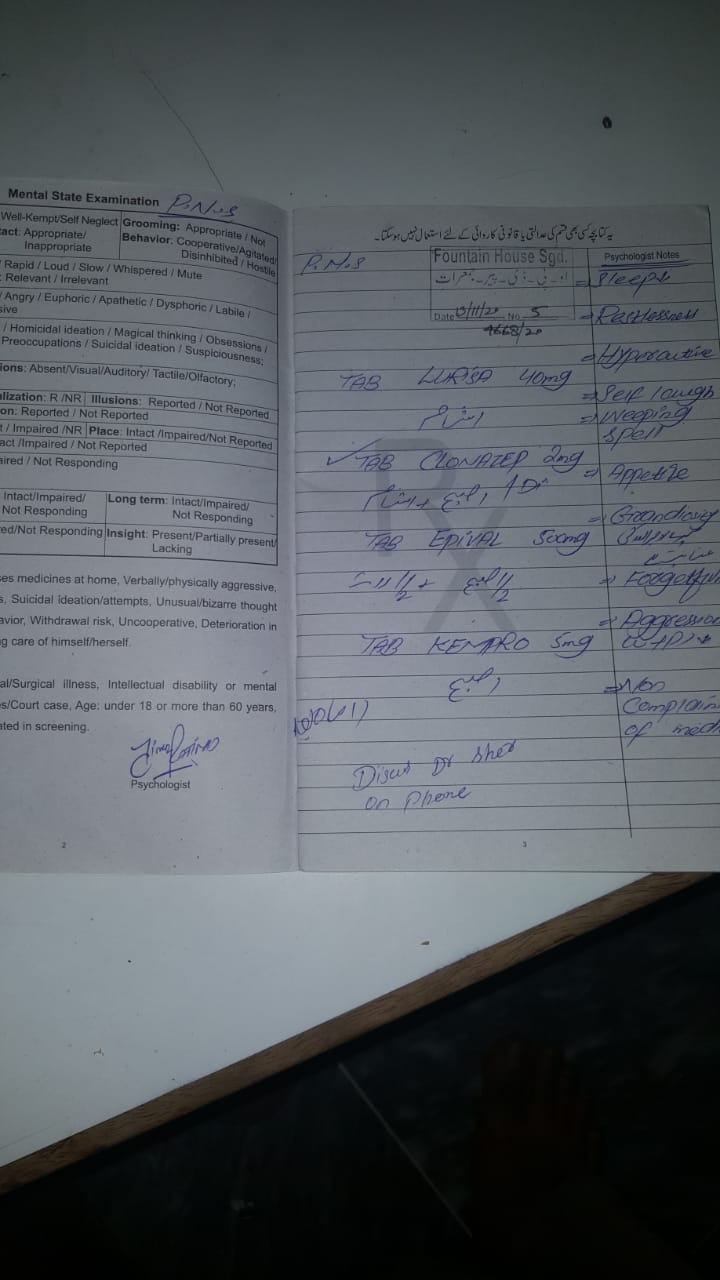 Mental State Examination P.N.S
Well-Kempt/Self Neglect Grooming: Appropriate / Not
tact: Appropriate/ Inappropriate
Behavior: Cooperative/Agitated/ Disinhibited / Hostile
/ Rapid / Loud / Slow / Whispered / Mute
: Relevant / Irrelevant
/ Angry / Euphoric / Apathetic / Dysphoric / Labile /
sive
/ Homicidal ideation / Magical thinking / Obsessions /
Preoccupations / Suicidal ideation / Suspiciousness;
ions: Absent/Visual/Auditory/ Tactile/Olfactory;
alization: R /NR Illusions: Reported / Not Reported
on: Reported / Not Reported
t / Impaired /NR Place: Intact /Impaired/Not Reported
act /Impaired / Not Reported
aired / Not Responding
Intact/Impaired/ Not Responding
Long term: Intact/Impaired/ Not Responding
ed/Not Responding Insight: Present/Partially present/ Lacking
ses medicines at home, Verbally/physically aggressive,
s, Suicidal ideation/attempts, Unusual/bizarre thought
avior, Withdrawal risk, Uncooperative, Deterioration in
g care of himself/herself.
al/Surgical illness, Intellectual disability or mental
es/Court case, Age: under 18 or more than 60 years,
ated in screening.
Psychologist
2
یہ کتابچہ کسی بھی قسم کی عدالتی یا قانونی کاروائی کے لئے استعمال نہیں ہوسکتا۔
P.N.S
Fountain House Sgd.
او۔پی۔ڈی۔پیر۔جمعرات
Date No. 5
4668/20
TAB LURISA 40mg
شام
✓ TAB CLONATEP 2mg
صبح + شام
TAB EPIVAL 500mg
1/2 صبح + 1/2 رات
TAB KEMPRO 5mg
صبح
Discus Dr Sher
on Phone
Psychologist Notes
⇒ Sleep↓
⇒ Restlessness
⇒ Hyperactive
⇒ Self laugh
⇒ Weeping
spell
⇒ Appetite
⇒ Grandiosity
⇒ Forgetful
⇒ Aggression
⇒ Non
Complain
of medi
3